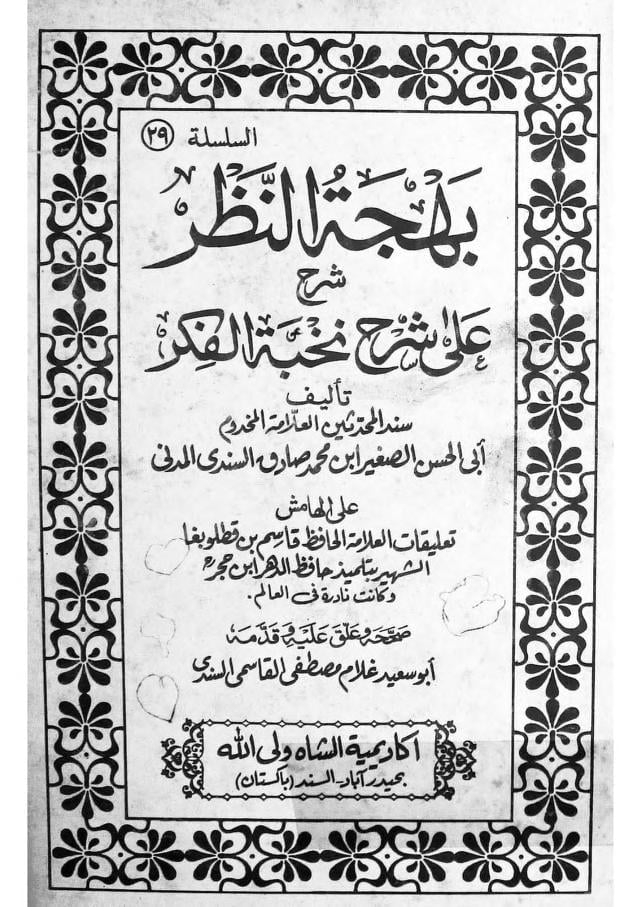 السلسلة ٢٩
بَهْجَةُ النَّظَر
شرح
عَلىٰ شرح نخبة الفِكر
تأليف
سند المحدّثين العلّامة المخدوم
أبى الحسن الصغير ابن محمد صادق السندى المدنى
على الهامش
تعليقات العلامة الحافظ قاسم بن قطلوبغا
الشهير بتلميذ حافظ الدهر ابن حجر
وكانت نادرة فى العالم.
صَحَّحَه وَعَلّقَ عَلَيْهِ وَقَدَّمَهُ
أبو سعيد غلام مصطفى القاسمى السندى
اكاديمية الشاه ولى الله
بحيدرآباد-السند (باكستان)